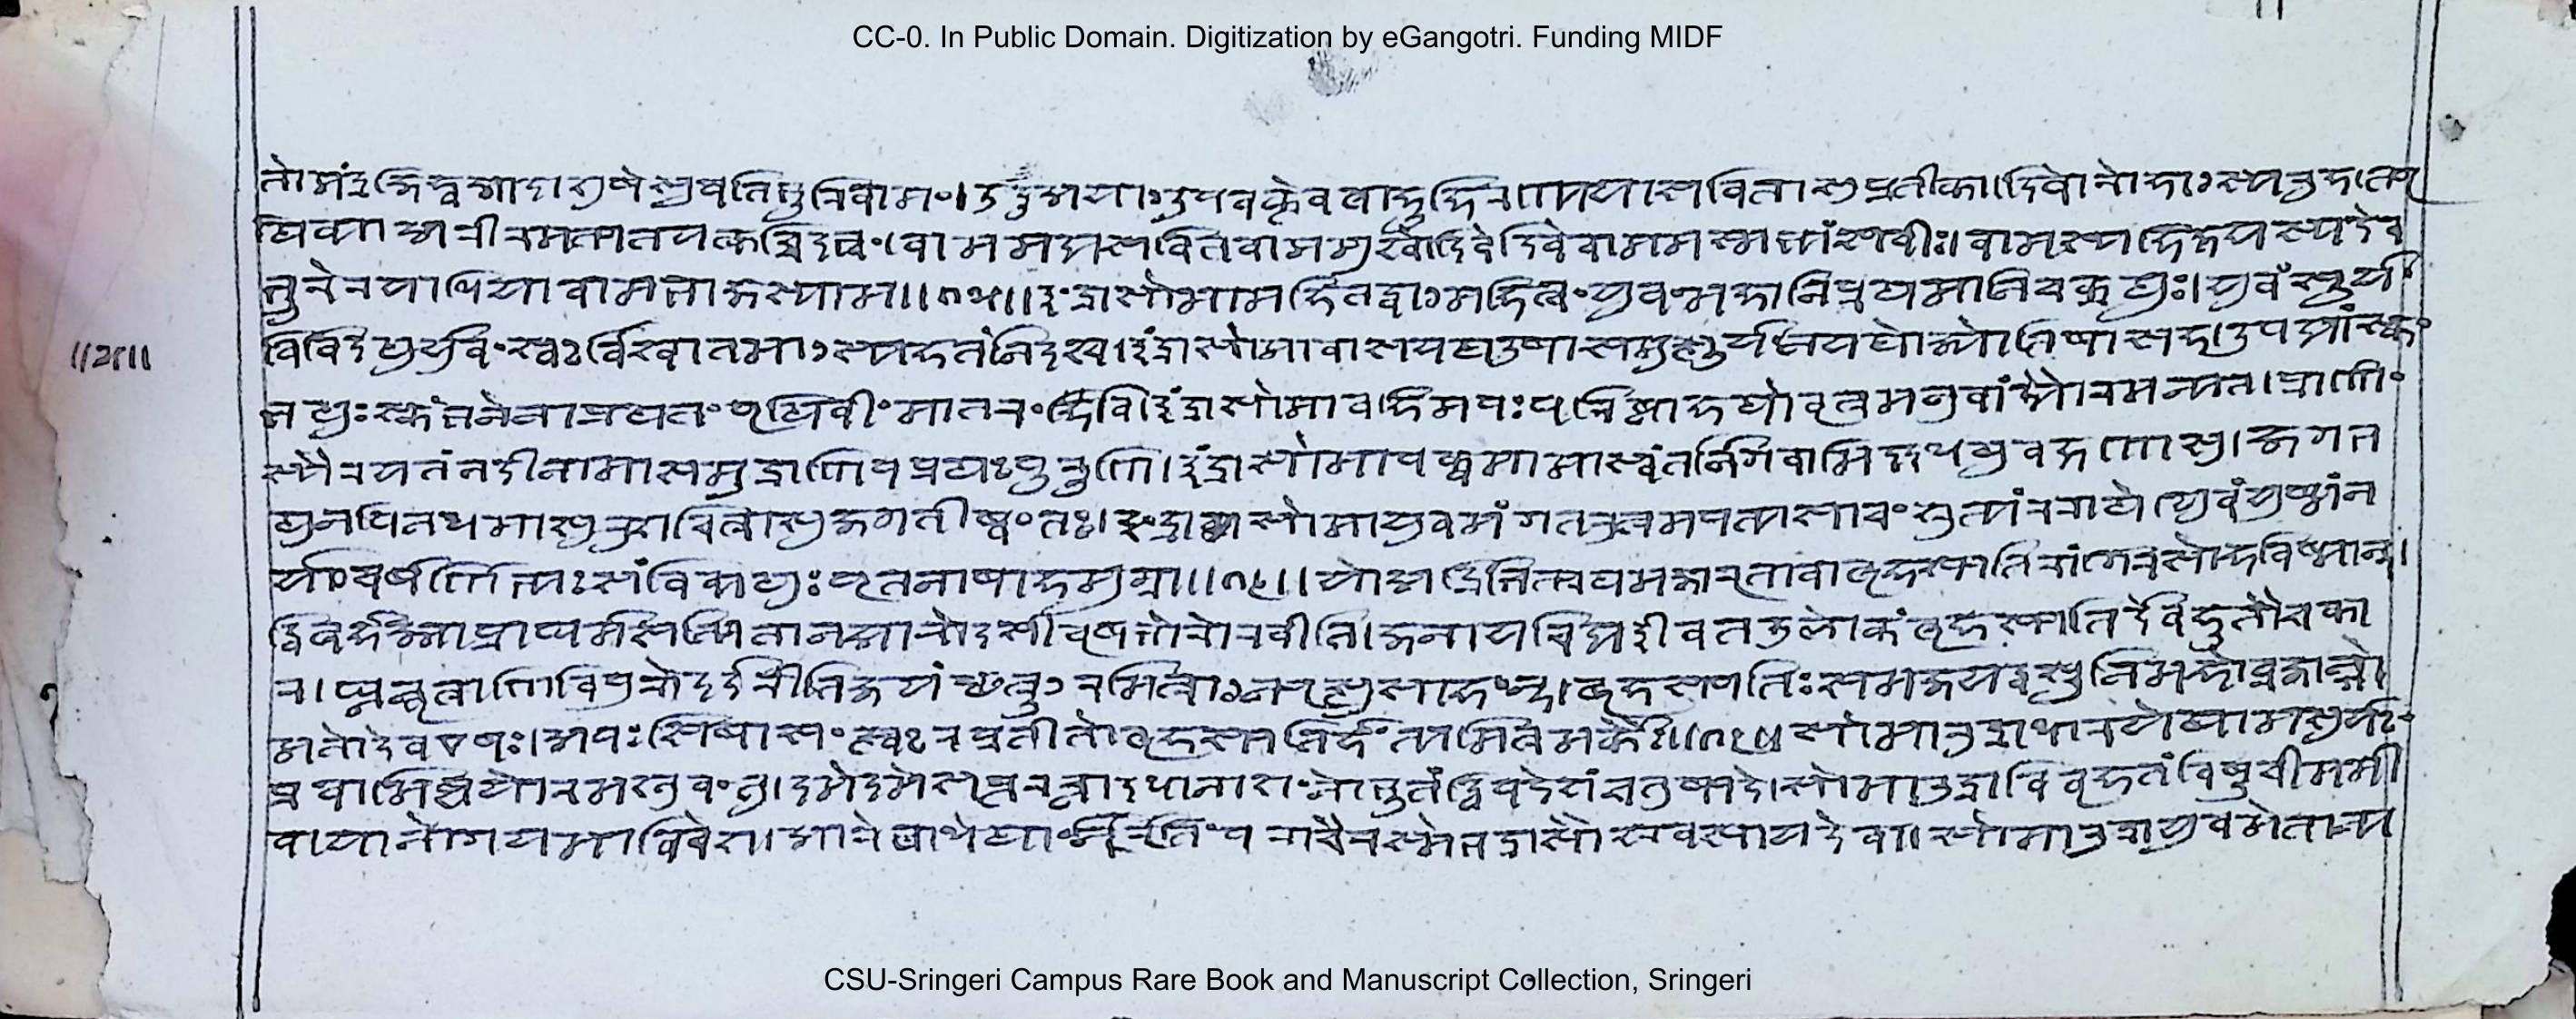 CC-0. In Public Domain. Digitization by eGangotri. Funding MIDF
तो मंद्रजिह्व आ दाशुषे सुवति भूरिवामं । उदू अयाँ उपवक्तेव बाहू हिरण्यया सविता सुप्रतीका । दिवो रोहांस्यरुहत्पृ
थिव्या अरीरमत्पतयत्कच्चिदभ्वं । वाममद्य सवितर्वाममु श्वो दिवेदिवे वाममस्मभ्यं सावीः । वामस्य हि क्षयस्य देव
भूरेरया धिया वामभाजः स्याम ॥१५॥ इंद्रासोमा महि तद्वां महित्वं युवं महानि प्रथमानि चक्रथुः । युवं सूर्यं
विविदथुर्युवं स्वर्विश्वा तमांस्यहतं निदश्च । इंद्रासोमा वासयथ उषासमुत्सूर्यं नयथो ज्योतिषा सह । उप द्यां स्कं
भथुः स्कंभनेनाप्रथतं पृथिवीं मातरं वि । इंद्रासोमावहिमपः परिष्ठां हथो वृत्रमनु वां द्यौरमन्यत । प्रार्णां
स्यैरयतं नदीनामा समुद्राणि पप्रथुः पुरूणि । इंद्रासोमा पक्वमामास्वंतर्नि गवामिद्दधथुर्वक्षणासु । जगृभ
थुरनपिनद्धमासु रुशच्चित्रासु जगतीष्वंतः । इंद्रासोमा युवमंग तरुत्रमपत्यसाचं श्रुत्यं रराथे । युवं शुष्मं न
र्यं चर्षणिभ्यः सं विव्यथुः पृतनाषाहमुग्रा ॥१६॥ यो अद्रिभित्प्रथमजा ऋतावा बृहस्पतिरांगिरसो हविष्मान् ।
द्विबर्हज्मा प्राघर्मसत्पिता न आ रोदसी वृषभो रोरवीति । जनाय चिद्य ईवत उ लोकं बृहस्पतिर्देवहूतौ चका
र । घ्नन्वृत्राणि वि पुरो दर्दरीति जयंच्छत्रूँरमित्रान्पृत्सु साहन् । बृहस्पतिः समजयद्वसूनि महो व्रजान्गो
मतो देव एषः । अपः सिषासंत्स्वरप्रतीतो बृहस्पतिर्हंत्यमित्रमर्कैः ॥१७॥ सोमारुद्रा धारयेथामसुर्यं
प्र वामिष्टयोरमश्नुवंतु । दमेदमे सप्त रत्ना दधाना शं नो भूतं द्विपदे शं चतुष्पदे । सोमारुद्रा वि वृहतं विषूचीममी
वा या नो गयमाविवेश । आरे बाधेथां निर्ऋतिं पराचैरस्मे भद्रा सोमारुद्रा युवमेतान्य
CSU-Sringeri Campus Rare Book and Manuscript Collection, Sringeri